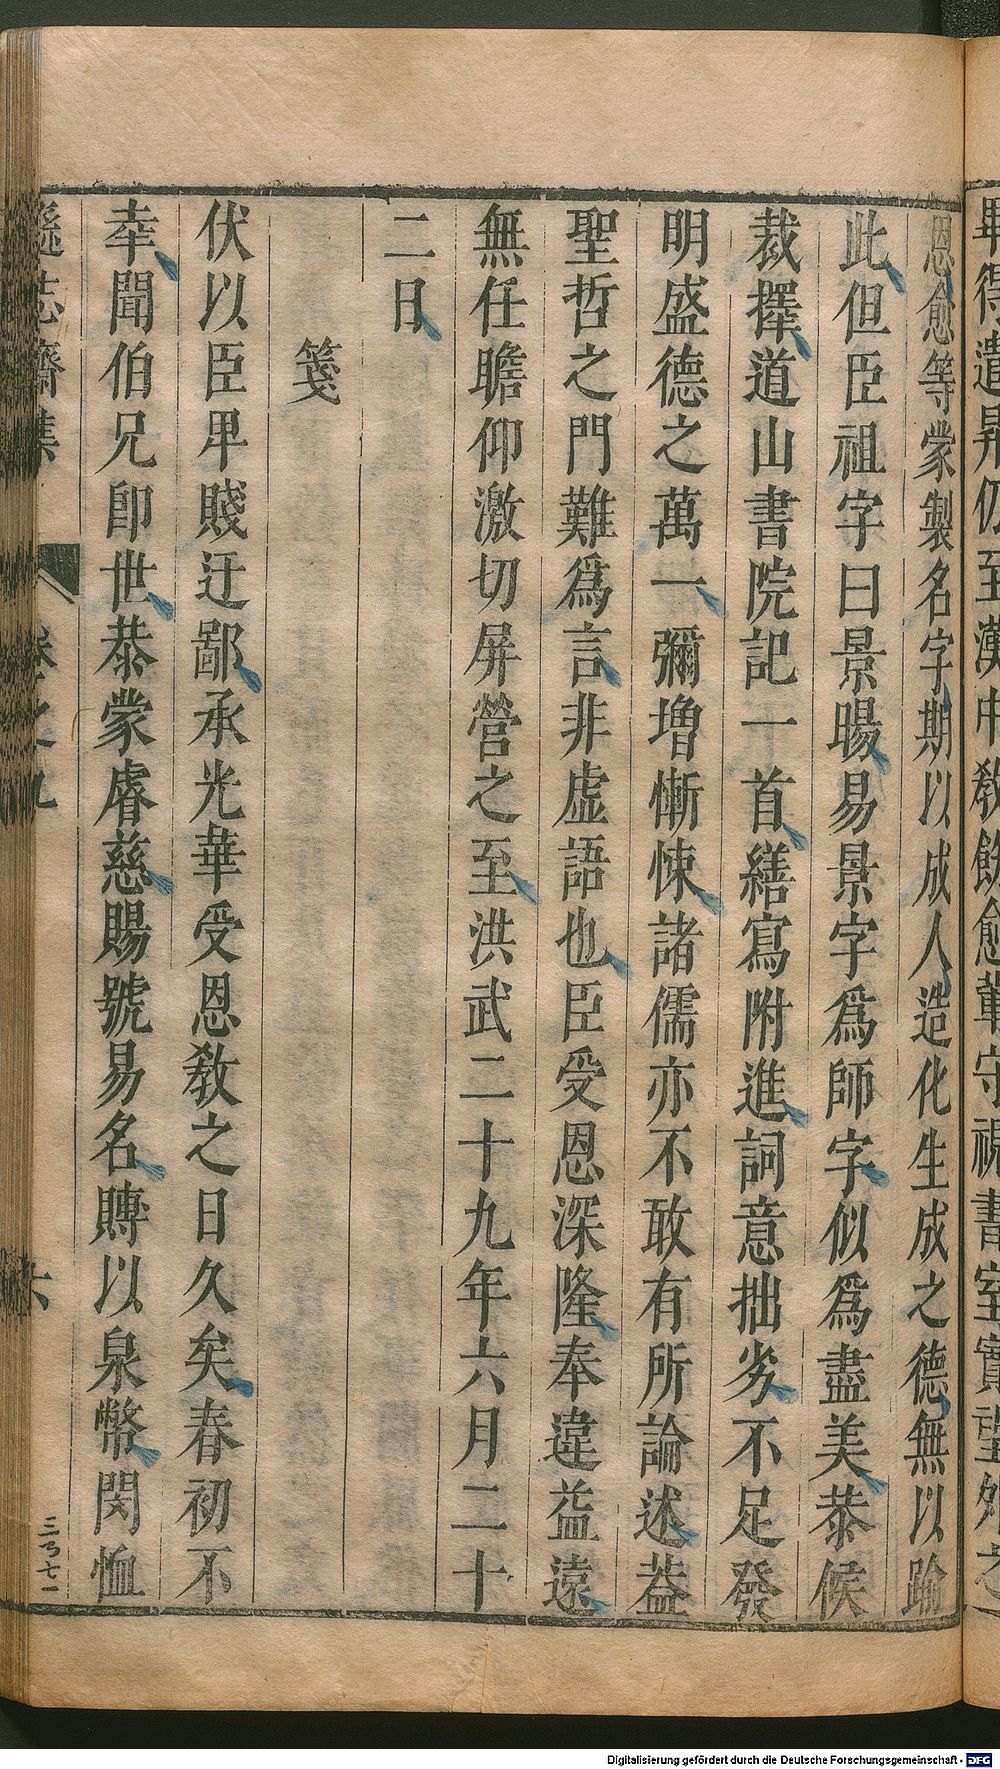 畢得遣歸仍至漢中敎飭愈輩守視書室實望外之
恩愈等蒙製名字期以成人造化生成之德無以踰
此但臣祖字曰景暘易景字爲師字似爲盡美恭候
裁擇道山書院記一首繕寫附進詞意拙劣不足發
明盛德之萬一彌增慚悚諸儒亦不敢有所論述葢
聖哲之門難爲言非虛語也臣受恩深隆奉違益遠
無任瞻仰激切屏營之至洪武二十九年六月二十
二日
箋
伏以臣卑賤迂鄙承光華受恩敎之日久矣春初不
幸聞伯兄卽世恭蒙睿慈賜號易名賻以泉幣閔恤
遜志齋集
卷之九
六
三丂七一
Digitalisierung gefördert durch die Deutsche Forschungsgemeinschaft - DFG